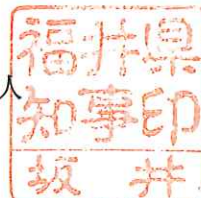 人
福井県
知事印
坂井